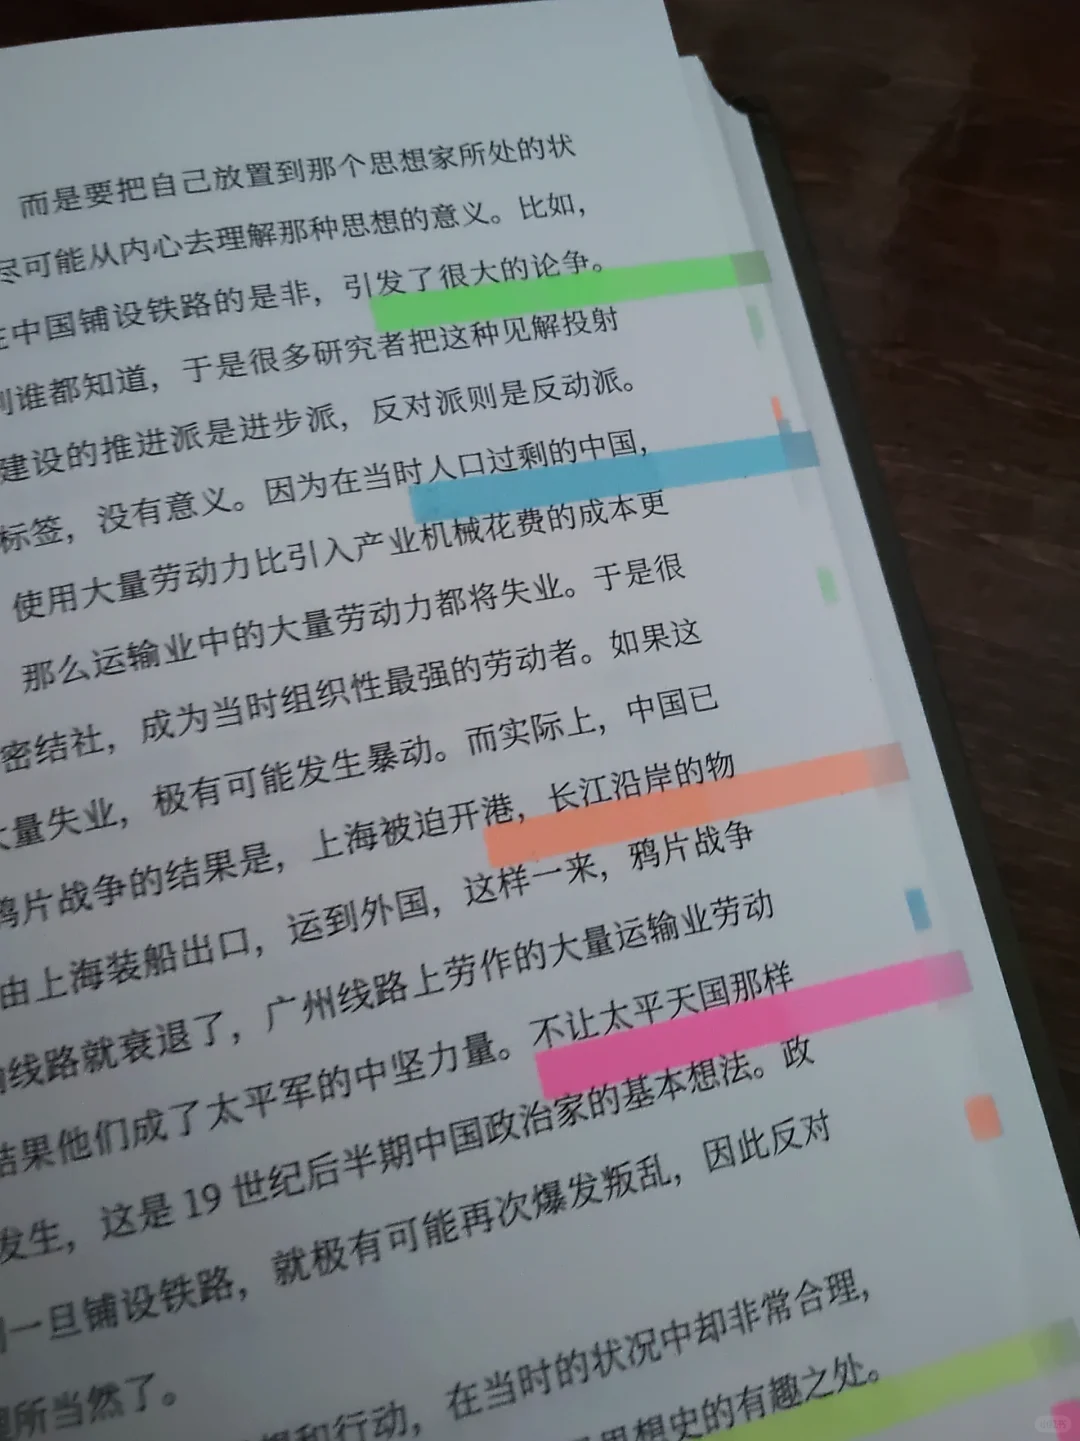 而是要把自己放置到那个思想家所处的状
尽可能从内心去理解那种思想的意义。比如，
在中国铺设铁路的是非，引发了很大的论争。
则谁都知道，于是很多研究者把这种见解投射
建设的推进派是进步派，反对派则是反动派。
标签，没有意义。因为在当时人口过剩的中国，
使用大量劳动力比引入产业机械花费的成本更
那么运输业中的大量劳动力都将失业。于是很
密结社，成为当时组织性最强的劳动者。如果这
大量失业，极有可能发生暴动。而实际上，中国已
鸦片战争的结果是，上海被迫开港，长江沿岸的物
由上海装船出口，运到外国，这样一来，鸦片战争
线路就衰退了，广州线路上劳作的大量运输业劳动
结果他们成了太平军的中坚力量。不让太平天国那样
发生，这是19世纪后半期中国政治家的基本想法。政
一旦铺设铁路，就极有可能再次爆发叛乱，因此反对
所当然了。
和行动，在当时的状况中却非常合理，
思想史的有趣之处。